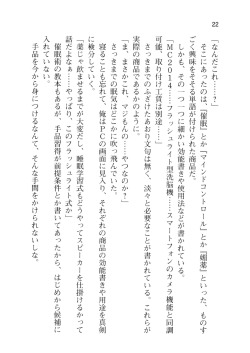 22
「なんだこれ……？」
そこにあったのは、『催眠』とか『マインドコントロール』とか『媚薬』といった、ものす
ごく興味をそそる単語が付けられた商品だ。
しかも、その一つ一つに細かい効能書きや使用法などが書かれている。
『ＭＣ２０１４　フラッシュライト型洗脳機……スマートフォンのカメラ機能と同調
可能、取り付け工賃は別途……』
さっきまでのふざけたあおり文句は無く、淡々と必要なことだけが書かれている。これらが
商品の実在であるかのように。
「ま、まさか、これ、マジもんの……？　や、やってるのか？」
さっきまでの眠気はどこかに吹っ飛んでいた。
寝ることも忘れて、俺はＰＣの画面に見入り、それぞれの商品の効能書きや用途を真剣
に検分していく。
「薬じゃ飲ませるまでが大変だし、睡眠学習式もどうやってスピーカーを仕掛けるかって
話だよなぁ……やっぱり、このフラッシュライト式か」
催眠術の教本もあるが、手品習得が前提条件とか書いてあったから、はじめから候補に
入れていない。
手品を今から身に着けるなんて